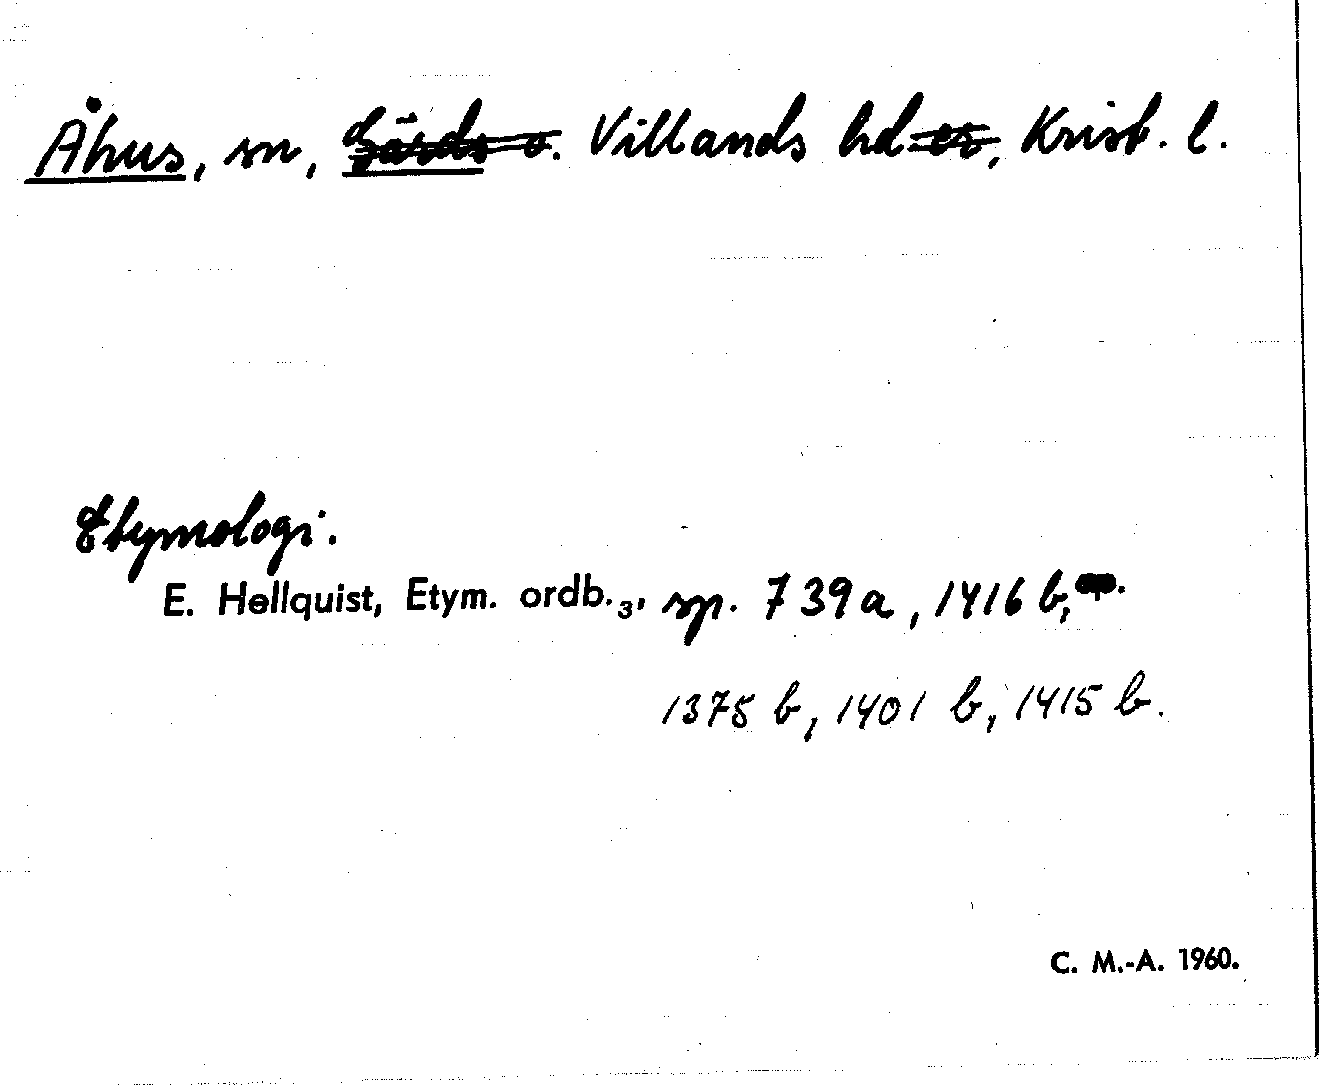 Åhus, sn, Gärds o. Villands hd er, Krist. l.
Etymologi.
E. Hellquist, Etym. ordb.3, sp. 739a, 1416 b,
1375 b, 1401 b, 1415 b.
C. M.-A. 1960.